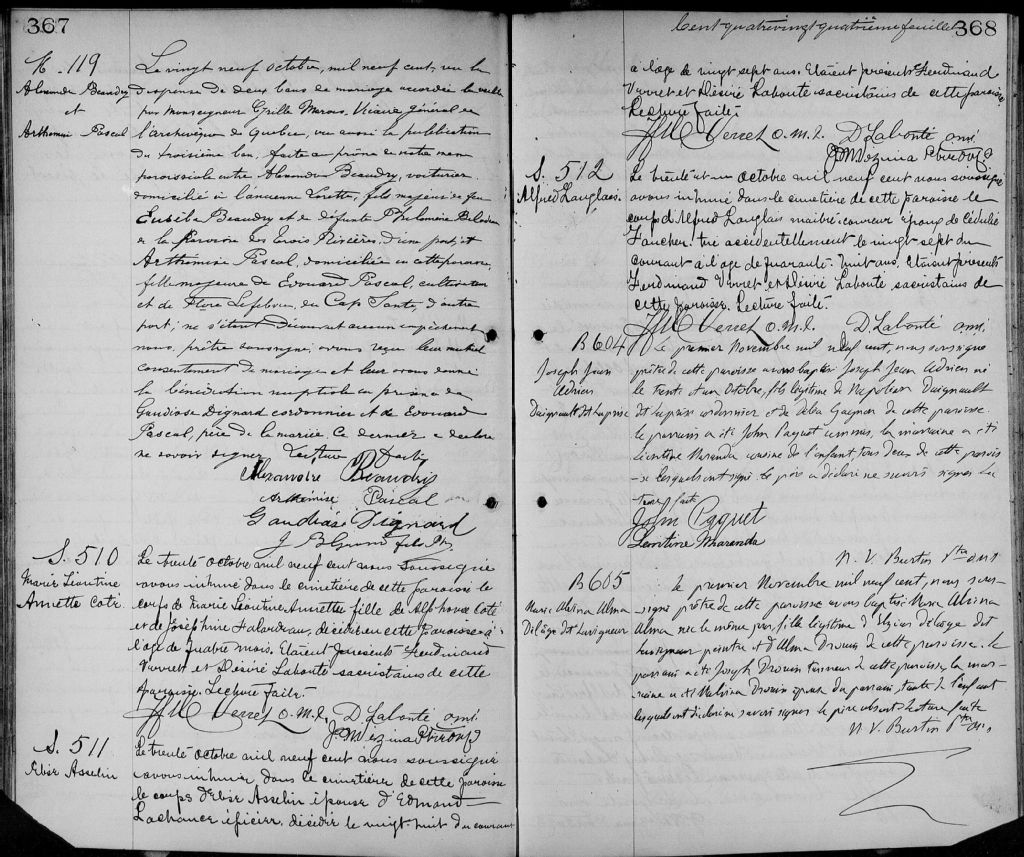 367
M. 119
Alexandre Beaudry
et
Arthémise Pascal
Le vingt neuf octobre, mil neuf cent, vu la
dispense de deux bans de mariage accordée
par Monseigneur Marois, Vicaire général de
l'archevêque de Québec, vu aussi la publication
du troisième ban, faite au prône de notre messe
paroissiale entre Alexandre Beaudry, voiturier
domicilié à l'ancienne Lorette, fils majeur de feu
Eusèbe Beaudry et de défunte Philomène
de la Paroisse des Trois Rivières, d'une part; et
Arthémise Pascal, domiciliée en cette paroisse,
fille majeure de Edouard Pascal, cultivateur
et de Flore Lefebvre, du Cap Santé, d'autre
part; ne s'étant découvert aucun empêchement
nous, prêtre soussigné, avons reçu leur mutuel
consentement de mariage et leur avons donné
la bénédiction nuptiale en présence de
Gaudiose Dignard cordonnier et de Edouard
Pascal, père de la mariée. Ce dernier a déclaré
ne savoir signer. Lecture faite
Alexandre Beaudry
Arthémise Pascal
Gaudiose Dignard
S. 510
Marie Léontine
Annette Coté
Le trente octobre mil neuf cent nous soussigné
avons inhumé dans le cimetière de cette paroisse le
corps de Marie Léontine Annette fille de Alphonse Coté
et de Joséphine Falardeau, décédée en cette paroisse à
l'age de quatre mois. Etaient présents Ferdinand
Verret et Désiré Labonté sacristains de cette
paroisse. Lecture faite.
JFM Verret O.M.I. D. Labonté
J. Mezina
S. 511
Asselin
Le trente octobre mil neuf cent nous soussigné
avons inhumé dans le cimetière de cette paroisse
le corps d' Asselin épouse d'Edmond
Lachance épicier, décédée le vingt-huit du courant
Cent quatrevingt quatrième feuillet
368
à l'age de vingt sept ans. Etaient présents Ferdinand
Verret et Désiré Labonté sacristains de cette paroisse.
Lecture faite.
JFM Verret O.M.I. D. Labonté
J. Mezina
S. 512
Alfred Langlais.
Le trente et un octobre mil neuf cent nous soussigné
avons inhumé dans le cimetière de cette paroisse le
corps d'Alfred Langlais maitre-couvreur époux de Cédulie
Faucher, tué accidentellement le vingt sept du
courant à l'age de quarante-huit ans. Etaient présents
Ferdinand Verret, et Désiré Labonté sacristains de
cette paroisse. Lecture faite.
JFM Verret O.M.I. D. Labonté
B 604
Joseph Jean
Adrien
Daignault dit Laprise
Le premier Novembre mil neuf cent, nous soussigné
prêtre de cette paroisse avons baptisé Joseph Jean Adrien né
le trente et un Octobre, fils légitime de Napoléon Daignault
dit Laprise cordonnier et de Gagnon de cette paroisse.
Le parrain a été John Paquet commis, la marraine a été
Léontine Maranda cousine de l'enfant, tous deux de cette parois-
se lesquels ont signé. Le père a déclaré ne savoir signer. Lec-
ture faite
John Paquet
Léontine Maranda
N. V. Burtin Ptre O.M.I
B 605
Marie Alvina Alma
Délâge dit Lavigueur
Le premier Novembre mil neuf cent, nous sous-
signé prêtre de cette paroisse avons baptisé Marie Alvina
Alma née le même jour, fille légitime d'Elzéar Délâge dit
Lavigueur peintre et d'Alma Drouin de cette paroisse. Le
parrain a été Joseph Drouin tanneur de cette paroisse, la mar-
raine a été Malvina Drouin épouse du parrain, tante de l'enfant
lesquels ont déclaré ne savoir signer. Le père absent. Lecture faite
N. V. Burtin Ptre